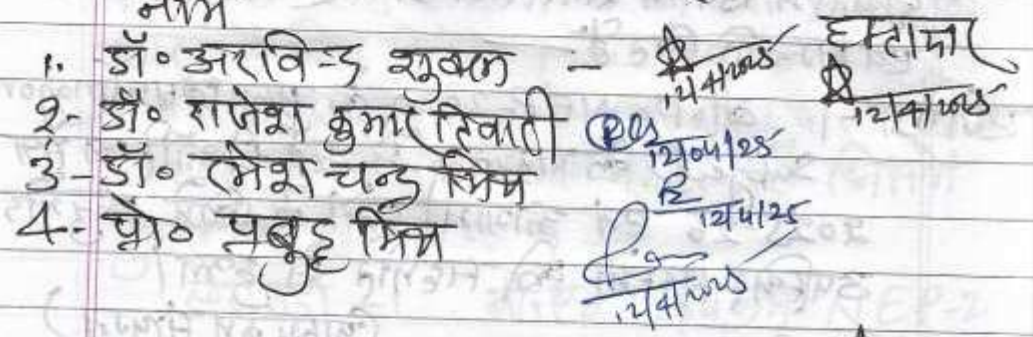 नाम
हस्ताक्षर
1. डॉ० अरविन्द शुक्ल - 12/4/2025 12/4/2025
2- डॉ० राजेश कुमार तिवारी 12/04/25
3- डॉ० रमेश चन्द्र मिश्र 12/4/25
4- प्रो० प्रबुद्ध मिश्र 12/4/2025